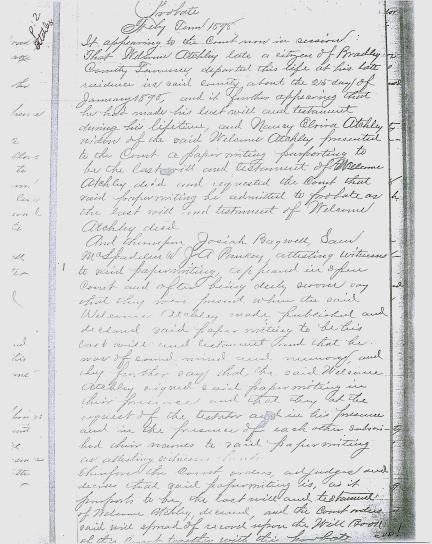 Probate
Feby Term 1895
It appearing to the Court now in session
That Welcome Atchley late a citizen of Bradley
County Tennessee departed this life at his late
residence in said county about the 25 day of
January 1895, and it further appearing that
he had made his last will and testament
during his lifetime, and Nancy Atchley
widow of the said Welcome Atchley presented
to the Court a paper writing purporting to
be the last will and testament of Welcome
Atchley dec'd and requested the Court that
said paperwriting be admitted to probate as
the last will and testament of Welcome
Atchley dec'd
And thereupon Josiah Bagwell, Sam
McSpadden & J.A. attesting witnesses
to said paperwriting, appeared in open
Court and after being duly sworn say
that they were present when the said
Welcome Atchley made published and
declared said paper writing to be his
last will and testament and that he
was of sound mind and memory, and
they further say that he said Welcome
Atchley signed said paperwriting in
their presence and that they at the
request of the testator and in his presence
and in the presence of each other subscri-
bed their names to said paperwriting
as attesting witnesses
thereupon the Court orders, adjudges and
decrees that said paperwriting is, as it
purports to be, the last will and testament
of Welcome Atchley, deceased, and the Court orders
said will spread of record upon the Will Book
of the Court together with this probate